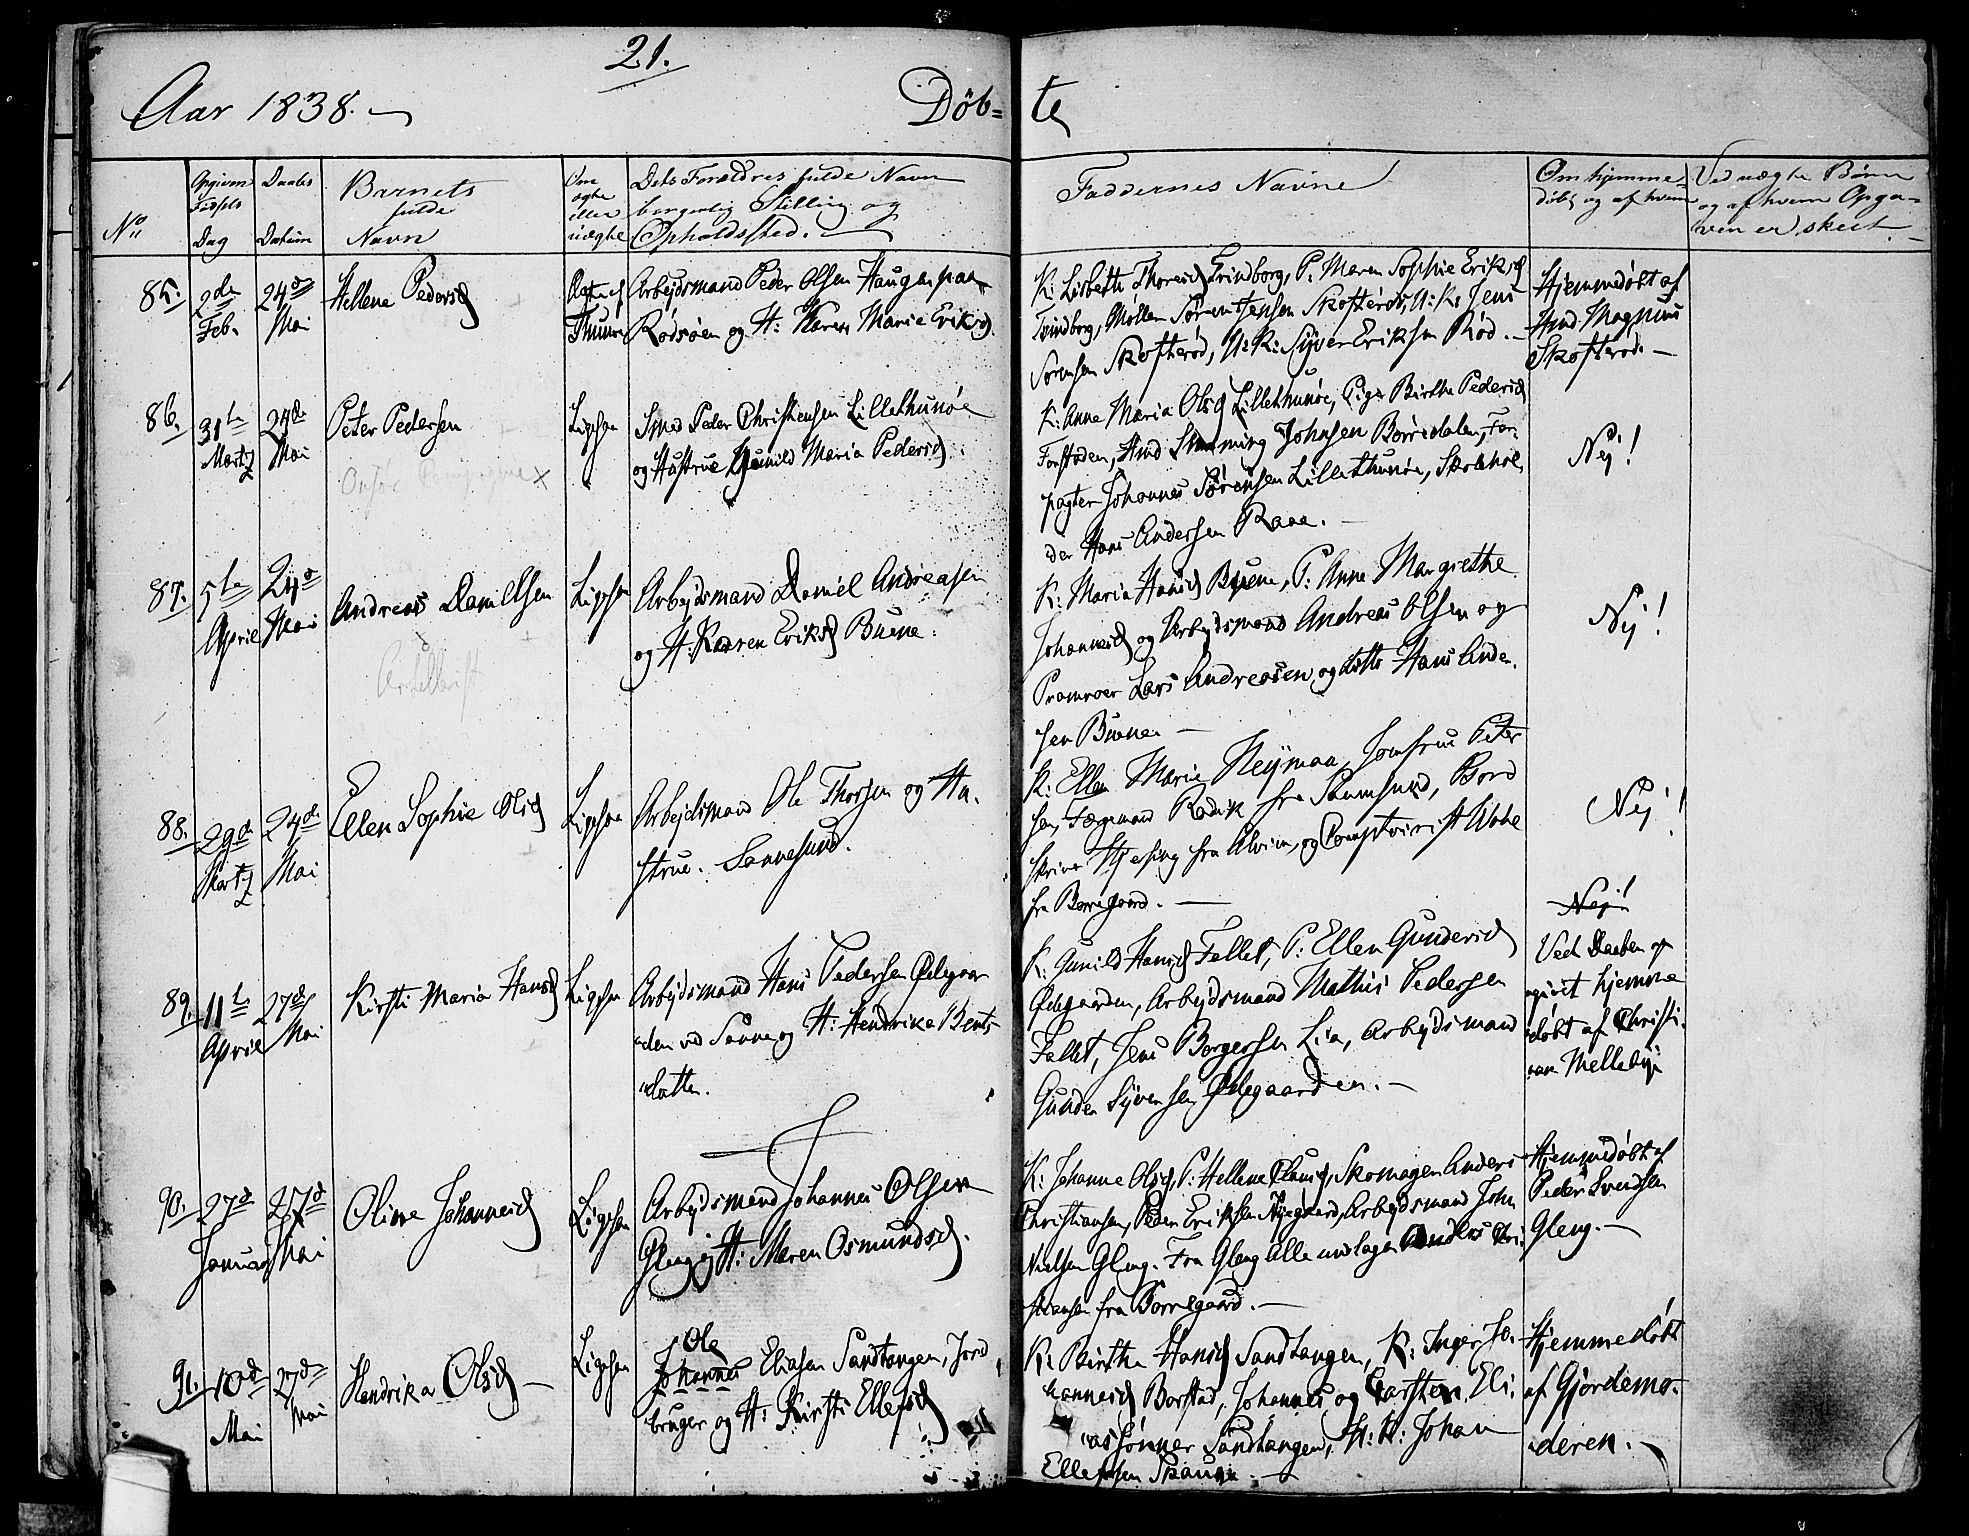 21.
Aar 1838.
Döb=
te
No
Opgiven
Födsels
Dag
Daabs
Datum
Barnets
fulde
Navn
Om
ægte
eller
uægte
Dets Forældres fulde Navn
borgerlig Stilling og
Opholdssted.
Faddernes Navne
Om hjemme=
döbt og af hvem
Ved uægte Börn
og af hvem Opga=
ven er skeet.
85.
2de
Feb.
24de
Mai
Hellene Pedersd
Arbejdsmand Peder Olsen Haugen paa
Rödsöen og H: Karen Marie Eriksd.
K: Lisbeth Thoresd Grindborg, P: Maren Sophie Eriksd
Grindborg, Möller Sören Jensen Skofteröd, U: K: Jens
Sörensen Skofteröd, U: K: Syver Eriksen Röd.
Hjemmedöbt af
Hmd. Magnus
Skofteröd.
86.
31te
Martz
24de
Mai
Peter Pedersen
Ligesaa
Smed Peder Christensen Lillethunöe
og Hustrue Gunild Maria Pedersd.
K: Anne Maria Olsd Lillethunöe, Pige Birthe Pedersd
Forstaden, Hmd Johnsen Borredalen, For-
pagter Johannes Sörensen Lillethunöe, Skolehol
der Hans Andersen Raae.
Nej!
87.
5te
April
24de
Mai
Andreas Daniellsen
Ligesaa
Arbejdsmand Daniel Andreasen
og H: Karen Eriksd Buene.
K: Maria Hansd Buene, P: Anne Margrethe
Johannesd og Arbejdsmand Andreas Olsen og
Pramroer Lars Andreasen, og ditto Hans Ande.
sen Buene.
Nej!
88.
29de
Martz
24de
Mai
Ellen Sophie Olsd
Ligesaa
Arbejdsmand Ole Thorsen og Hu.
strue. Sannesund.
K: Ellen Marie Neumaa, Jomfrue Peter
sen, Færgemand Rödvik fra Sannesund, Bord
skriver Hjersing fra Alvim, og Comptoirist Wibe
fra Borregaard.
Nej!
Nej!
89.
11te
April
27de
Mai
Kirsti Maria Hansd
Ligesaa
Arbejdsmand Hans Pedersen Ödegaar
den ved Sanne og H: Hendrike Bents
datter.
K: Gunild Hansd Fallet, P: Ellen Gundersd
Ödegaarden, Arbejdsmand Mathis Pedersen
Fallet, Jens Borgersen Lie, Arbejdsmand
Gunder Syversen Ödegaarden.
Ved Daaben op
givet hjemme
döbt af Christi.
ane Mellebye
90.
27de
Januar
27de
Mai
Oline Johannesd
Ligesaa
Arbejdsmand Johannes Olsen
Gleng og H: Maren Osmundsd.
K: Johanne Olsd, P: Hellene Clausd, Skomager Anders
Christiansen, Peder Eriksen Nyegaard, Arbejdsmand John
Nielsen Gleng. Fra Gleng alle undtagen Anders Chri.
stiansen fra Borregaard.
Hjemmedöbt af
Peder Svendsen
Gleng.
91.
10de
Mai
27de
Mai
Hendrika Olsd
Ligesaa
Ole
Johannes Eliasen Sandtangen, Jord
bruger og H: Kirsti Ellefsd
K: Birthe Hansd Sandtangen, K: Inger Jo.
hannesd Borstad, Johannes og Carsten Eli.
assönner Sandtangen, H. K: Johan
Ellefsen Skaug.
Hjemmedöbt
af Gjordemo.
deren.